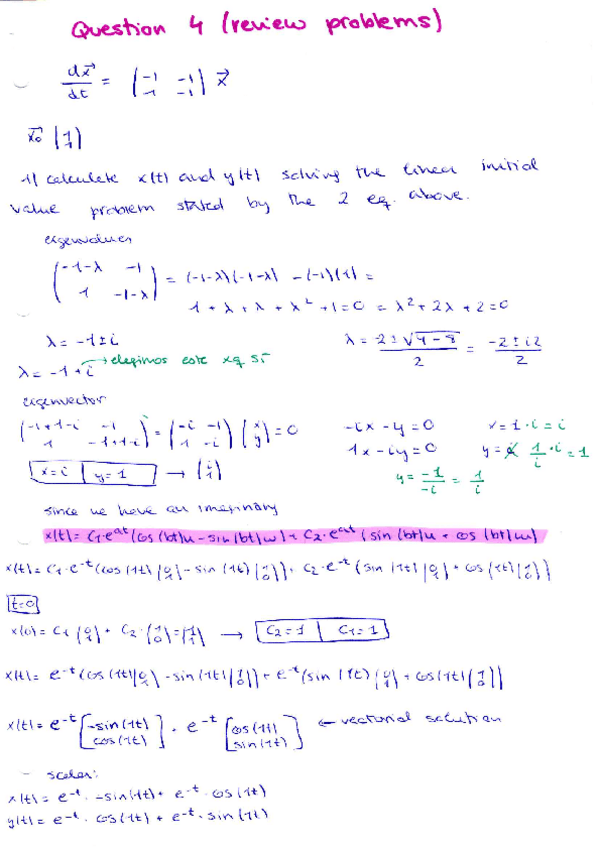 Question 4 (review problems)
dx⃗/dt = (-1 -1; 1 -1) x⃗
x₀⃗ (1; 1)
1) calculate x(t) and y(t) solving the linear initial
value problem stated by the 2 eq. above.
eigenvalues
(-1-λ -1; 1 -1-λ) = (-1-λ)(-1-λ) - (-1)(1) =
1 + λ + λ + λ² + 1 = 0 = λ² + 2λ + 2 = 0
λ = -1 ± i
λ = -2 ± √4-8 / 2 = -2 ± i2 / 2
λ = -1 + i → elegimos este xq sí
eigenvector
(-1+1-i -1; 1 -1+1-i) = (-i -1; 1 -i) (x; y) = 0
-ix - y = 0
1x - iy = 0
y = -1/-i = 1/i
x = 1 · i = i
y = 1/i · i = 1
x = i | y = 1 → (i; 1)
since we have an imaginary
x(t) = C1·e^at (cos(bt)u - sin(bt)w) + C2·e^at (sin(bt)u + cos(bt)w)
x(t) = C1·e^-t (cos(1t)(0; 1) - sin(1t)(1; 0)) + C2·e^-t (sin(1t)(0; 1) + cos(1t)(1; 0))
t=0
x(0) = C1 (0; 1) + C2·(1; 0) = (1; 1) → C2 = 1 | C1 = 1
x(t) = e^-t (cos(1t)(0; 1) - sin(1t)(1; 0)) + e^-t (sin(1t)(0; 1) + cos(1t)(1; 0))
x(t) = e^-t [-sin(1t); cos(1t)] + e^-t [cos(1t); sin(1t)] ← vectorial solution
- scalar:
x(t) = e^-t · -sin(1t) + e^-t · cos(1t)
y(t) = e^-t · cos(1t) + e^-t · sin(1t)